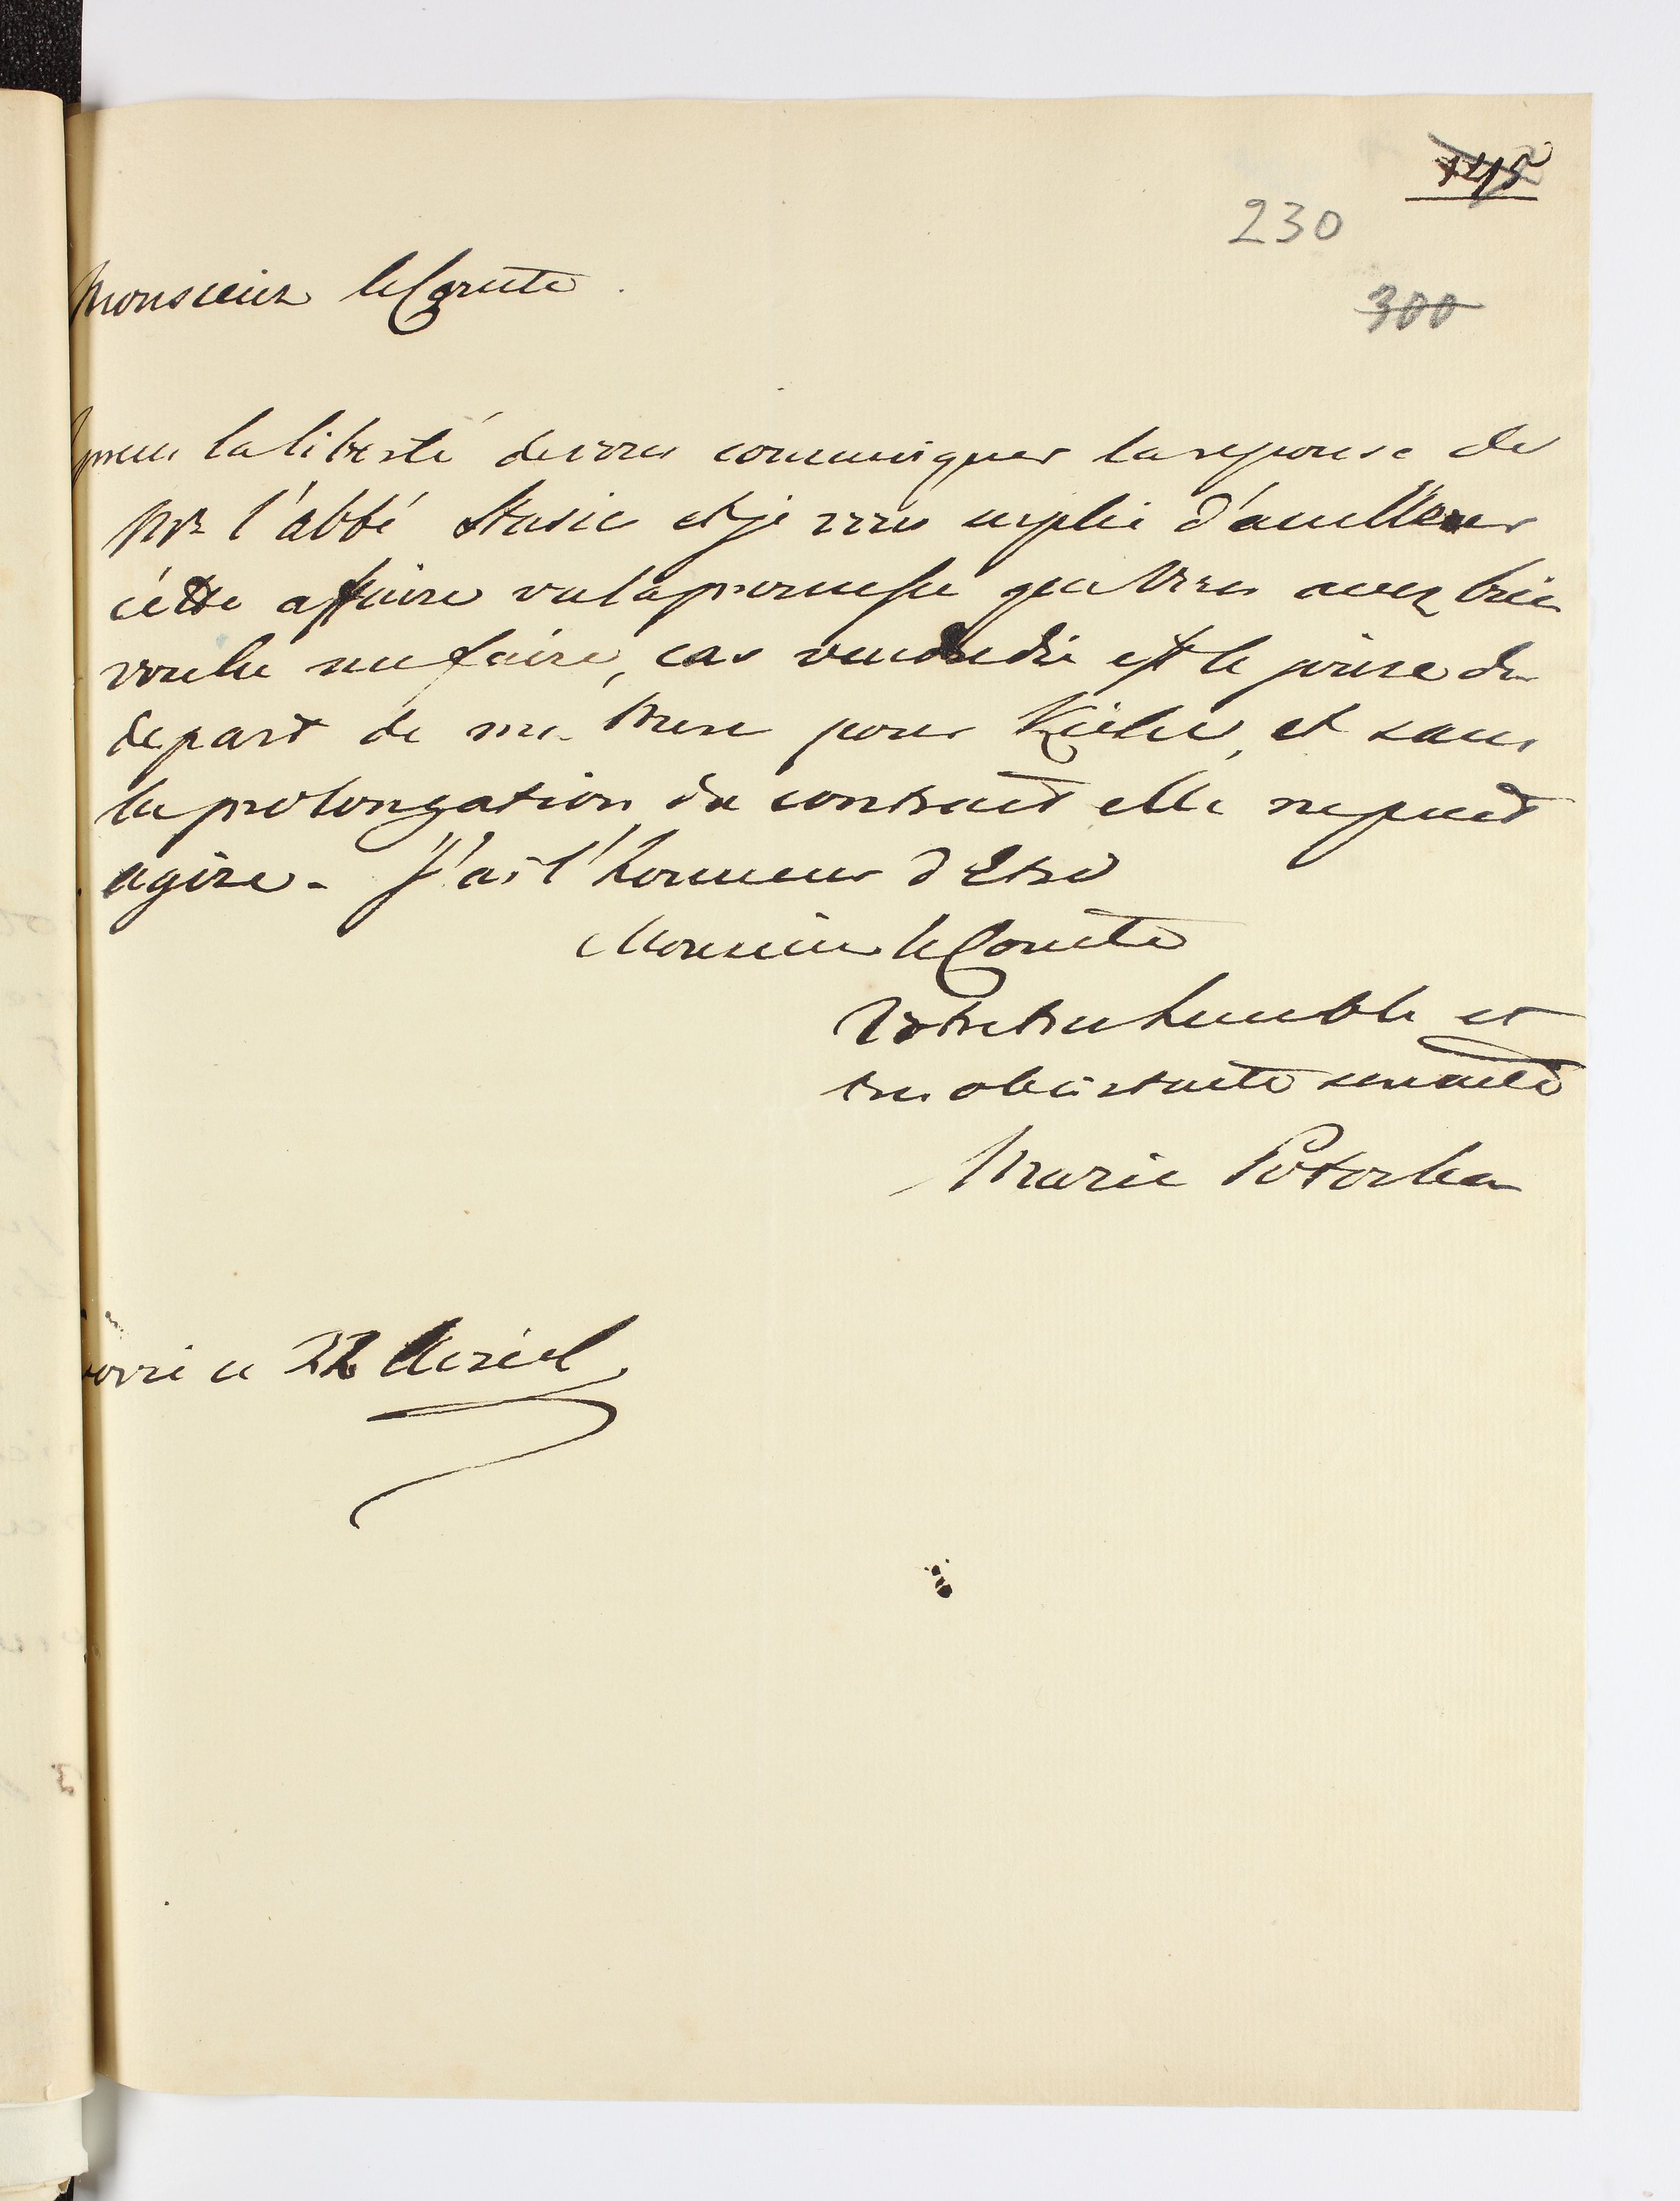 230
300
Monsieur le Comte
prens la liberté de vous communiquer la reponse de
Mr l'abbé Stasic et je vous suplie d'accellerer
cétte affaire vu la promesse que Vous avez bien
voulu me faire, car vendredie est le joure du
depart de ma Mere pour et sans
la prolongation du contract elle ne peut
agire. J'ai l'honneur d'Etre
Monsieur le Comte
Votre tres humble et
tres obeissante servante
Marie Potocka
ce 22 Avriel